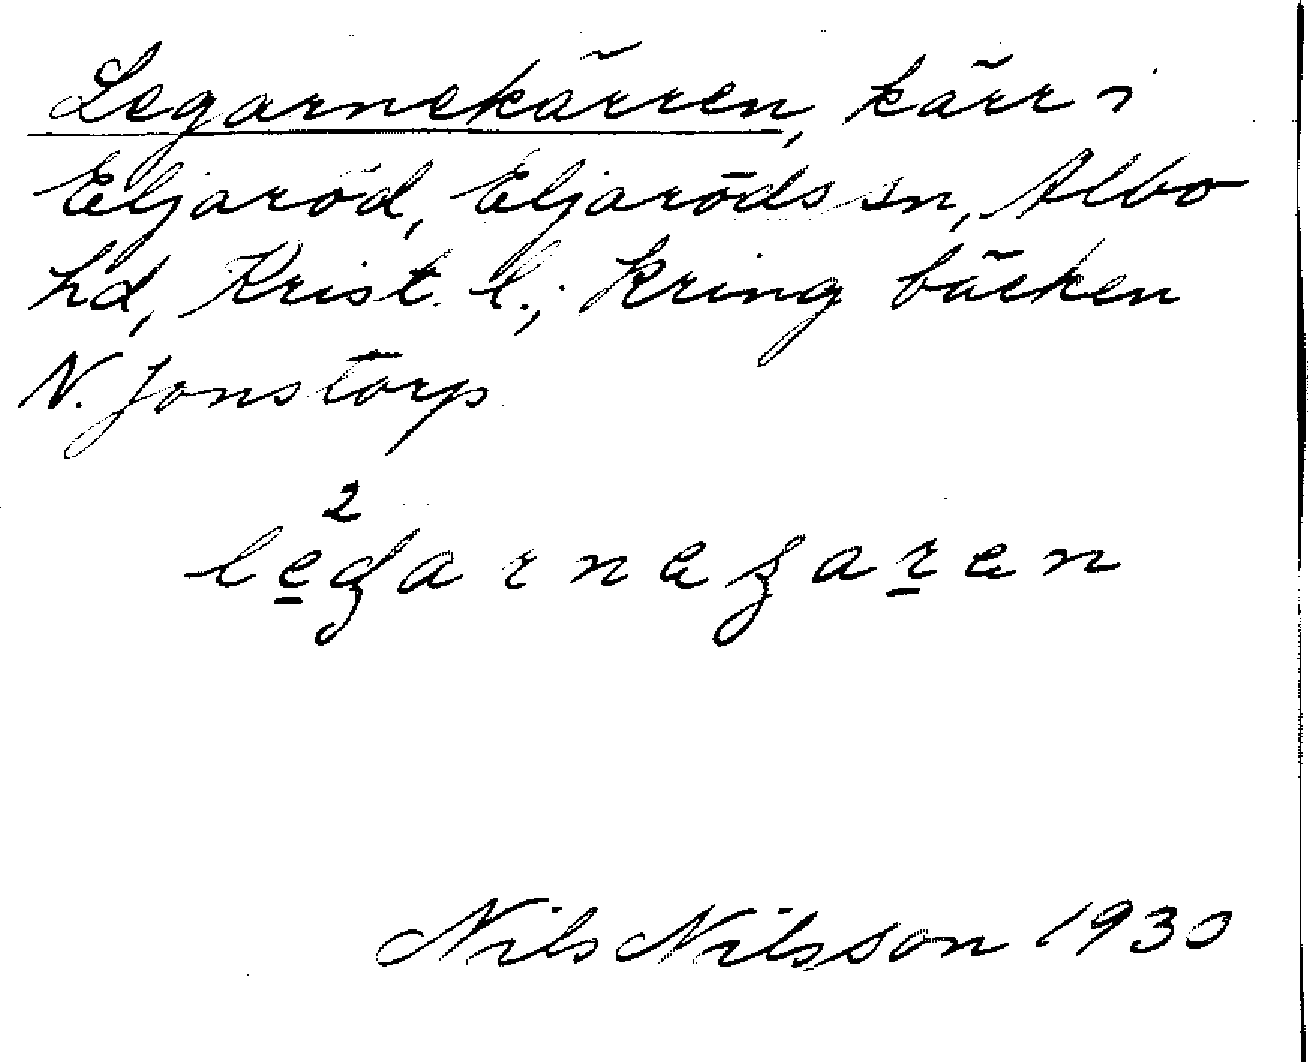 Legarnekärren, kärr i
Eljaröd, Eljaröds sn, Albo
hd, Krist. l.; kring bäcken
N. Jonstorp
2
legarnegaren
Nils Nilsson 1930